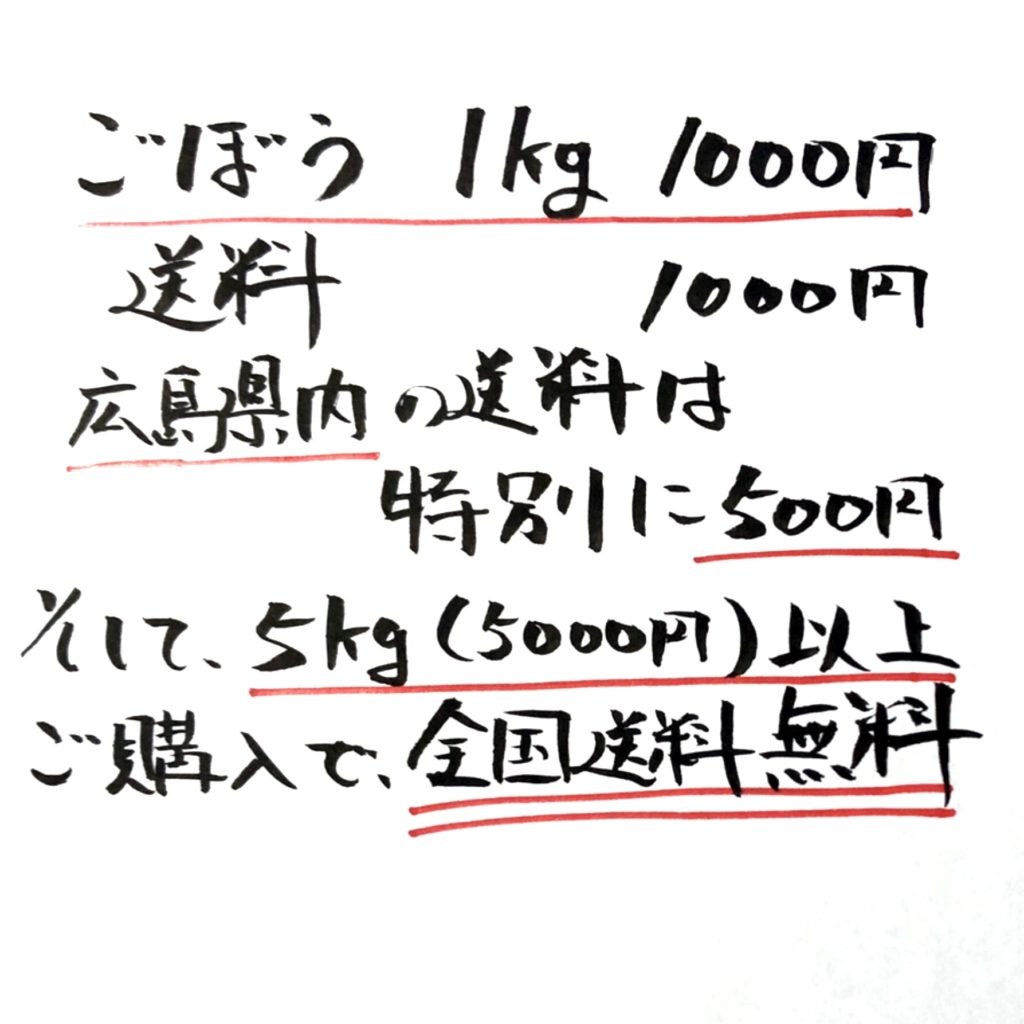 ごぼう 1kg 1000円
送料 1000円
広島県内の送料は
特別に500円
そして、5kg(5000円)以上
ご購入で、全国送料無料